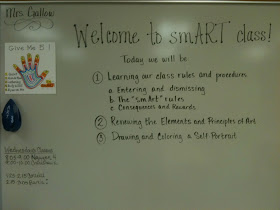 Mrs.
Welcome to smART class!
Give Me 5!
Today we will be
1 Learning our class rules and procedures
a. Entering and dismissing
b. The "smArt" rules
c. Consequences and Rewards
2 Reviewing the Elements and Principles of Art
3 Drawing and Coloring a Self Portrait
Wednesday Classes